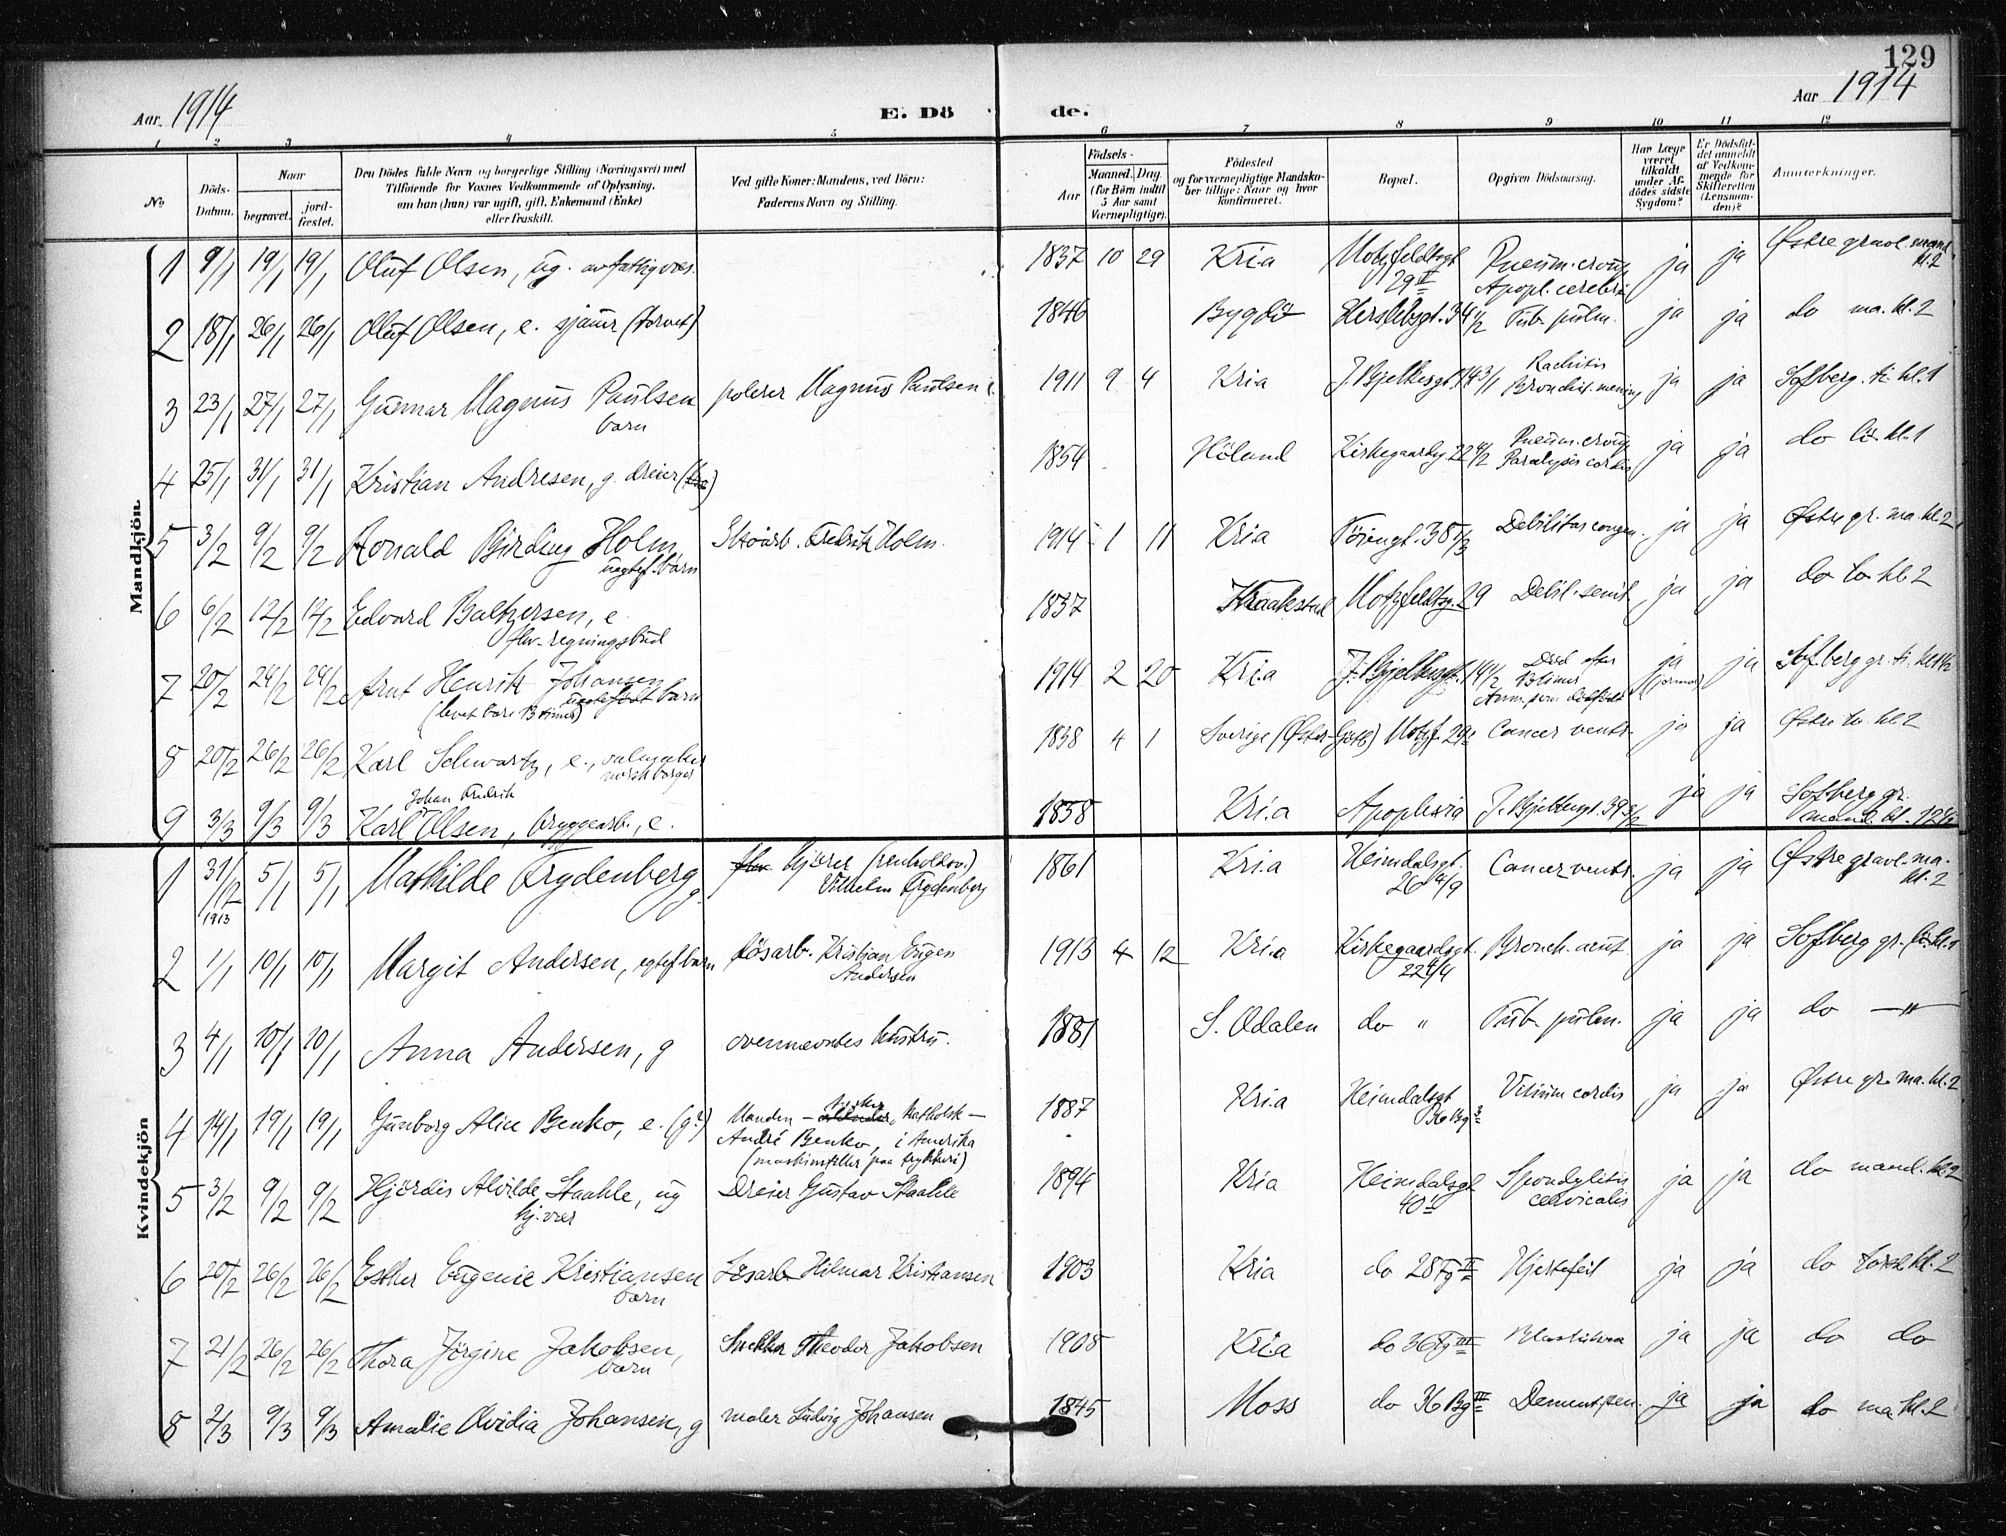 129
Aar 1914 E. Dö de. Aar 1914
1 2 3 4 5 6 7 8 9 10 11 12
No. Döds-Datum. Naar begravet. jordfæstet. Den Dödes fulde Navn og borgerlige Stilling (Næringsvei) med Tilföiende for Voxnes Vedkommende af Oplysning, om han (hun) var ugift, gift, Enkemand (Enke) eller fraskilt. Ved gifte Koner: Mandens, ved Börn: Faderens Navn og Stilling. Födsels- Aar Maaned. Dag. (for Börn indtil 5 Aar samt Værnepligtige). Födested og for værnepligtige Mandskaber tillige: Naar og hvor konfirmeret. Bopæl. Opgiven Dödsaarsag. Har Læge været tilkaldt under Afdödes sidste Sygdom? Er Dödsfaldet anmeldt af Vedkommende for Skifteretten (Lensmanden)? Anmærkninger.
Mandkjön.
1 9/1 19/1 19/1 Oluf Olsen, ug. av fattigvæs. 1837 10 29 Kria Motzfeldtsgt 29 II Pneum. croup. Apopl. cerebri ja ja Østre gravl. mand kl. 2
2 18/1 26/1 26/1 Oluf Olsen, e. sjauer (torvet) 1846 Bygdø Herslebsgt. 34 Tub. pulm. ja ja do ma. kl. 2
3 23/1 27/1 27/1 Gunnar Magnus Paulsen barn polerer Magnus Paulsen 1911 9 4 Kria J. Bjelkesgt. Rachitis Bronchit. mening ja ja Sofberg. ti. kl. 1
4 25/1 31/1 31/1 Kristian Andresen, g. dreier 1854 Höland Kirkegaardsg 22 Pneum. croup. Paralysis cordis ja ja do lö. kl. 1
5 3/2 9/2 9/2 Ronald Birding Holm, uegtef. barn Skoarb. Fredrik Holm. 1914 1 11 Kria Töiengt. 38 Debilitas congen. ja ja Østre gr. ma. kl. 2
6 6/2 12/2 12/2 Edvard Baltzersen, e. fhv. regningsbud 1837 Kraakstad Motzfeldtsg. 29 Debil. senil. ja ja do to kl. 2
7 20/2 24/2 24/2 Arnt Henrik Johansen uegtefødt barn (levet bare 13 timer) 1914 2 20 Kria J. Bjelkesgt. Død efter 13 timer Anm. som dødfødt ja (jormor) ja Sofberg gr. ti. kl. 1½
8 20/2 26/2 26/2 Karl Schwartz, e., norsk borger 1858 4 1 Sverige (Øster-Götl) Motzf. 29 Cancer ventr. ja ja Østre to. kl. 2
9 3/3 9/3 9/3 Karl Johan Fredrik Olsen, bryggearb., e. 1858 Kria Apoplexia J. Bjelkesgt. 39 ja ja Sofberg gr. mand. kl. 12½
Kvindekjön
1 31/12 1913 5/1 5/1 Mathilde Frydenberg g. fhv. kjører (renholdsv.) Vilhelm Frydenberg 1861 Kria Heimdalsgt. 26 Cancer ventr. ja ja Østre gravl. ma. kl. 2
2 1/1 10/1 10/1 Margit Andersen, egtef. barn Løsarb. Kristian Eugen Andersen 1913 4 12 Kria Kirkegaardsgt. 22 Bronch. acut. ja ja Sofberg gr. lö. kl. 1
3 4/1 10/1 10/1 Anna Andersen, g ovennævntes hustru. 1881 S. Odalen do " Tub. pulm. ja ja do —"—
4 14/1 19/1 19/1 Gunborg Alice Benko, e. (g?) Manden — katholsk — André Benko, i Amerika (maskinstiller paa trykkeri) 1887 Kria Heimdalsgt 36 Bg Vitium cordis ja ja Østre gr. ma. kl. 2
5 3/2 9/2 9/2 Hjördis Alvilde Staahle, ug hj. vær Dreier Gustav Staahle 1894 Kria Heimdalsgt 40 I Spondylitis cervicalis ja ja do mand. kl. 2
6 20/2 26/2 26/2 Esther Eugenie Kristiansen barn Løsarb Hilmar Kristiansen 1903 Kria do 28 Fg II Hjertefeil ja ja do torsd kl. 2
7 21/2 26/2 26/2 Thora Jørgine Jakobsen, barn Snekker Theodor Jakobsen 1908 Kria do 36 Fg III ja ja do do
8 2/3 9/3 9/3 Amalie Ovidia Johansen, g maler Ludvig Johansen 1845 Moss do 36 Bg III Dement. sen. ja ja do ma kl. 2